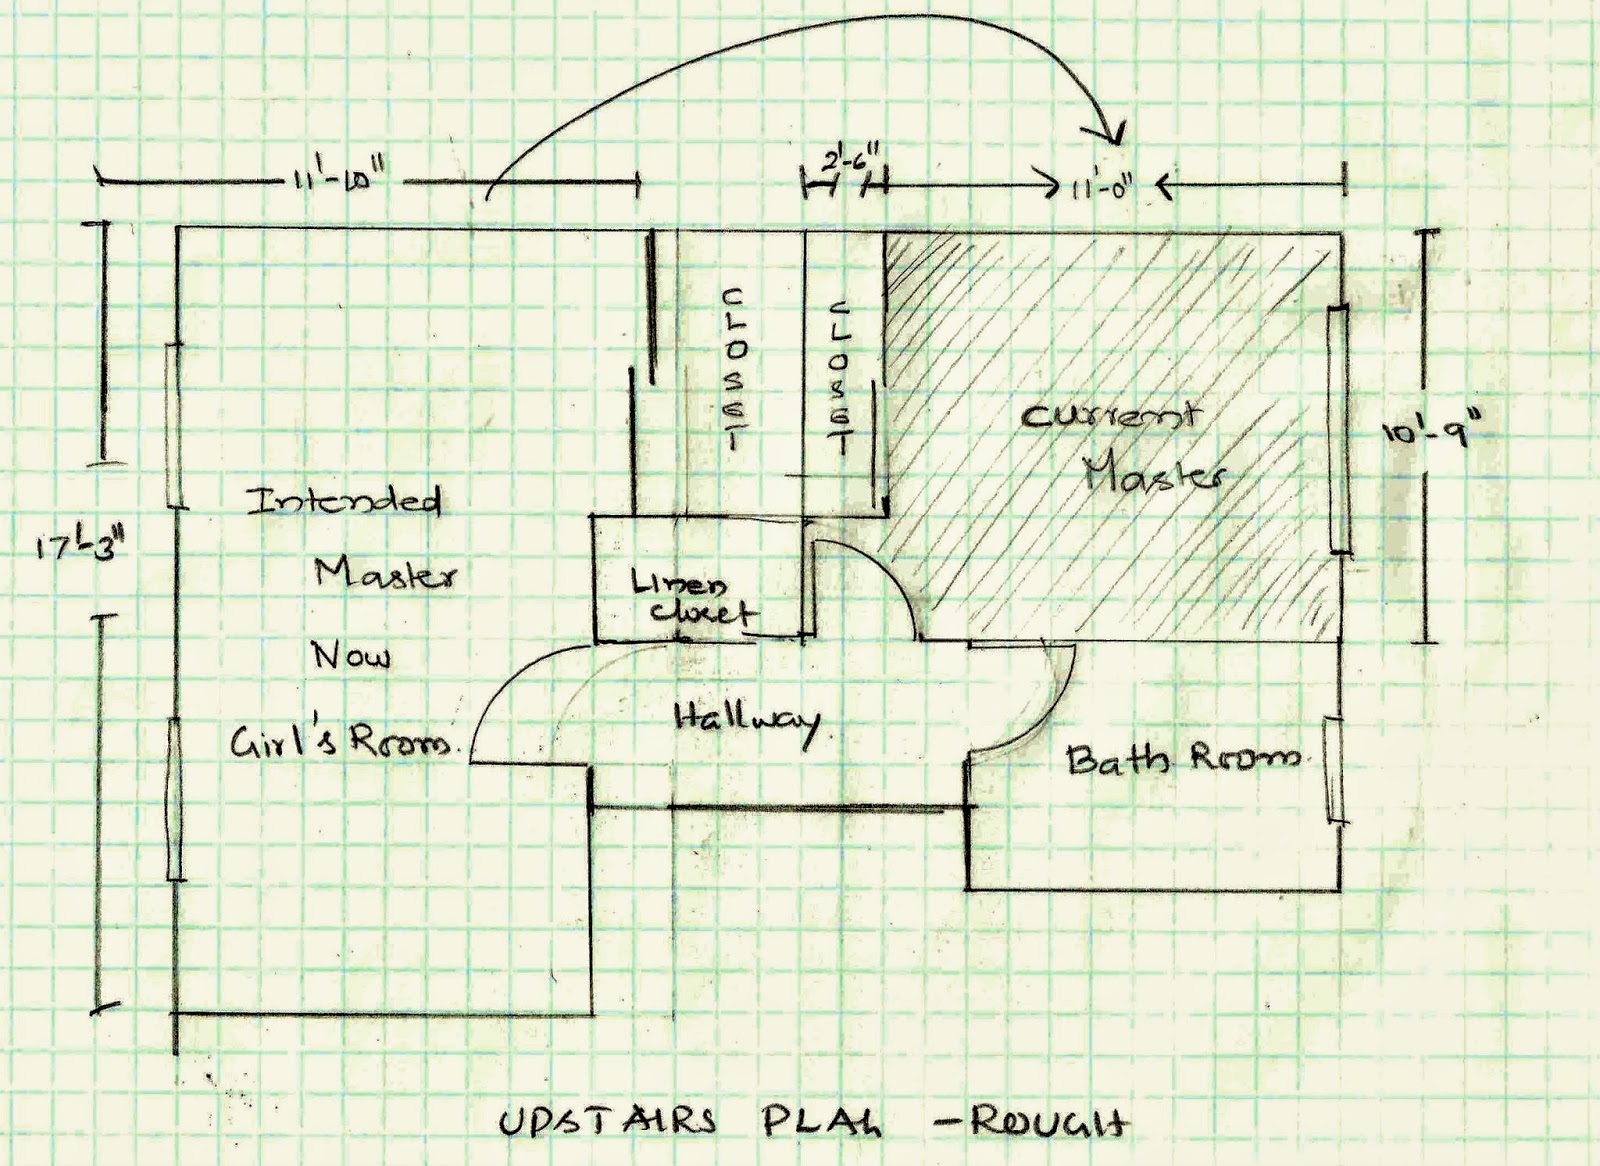 11'-10"
2'-6"
11'-0"
CLOSET
CLOSET
Current
Master
10'-9"
Intended
Master
Now
Girl's Room.
17'-3"
Linen
Closet
Hallway
Bath Room.
UPSTAIRS PLAN -ROUGH